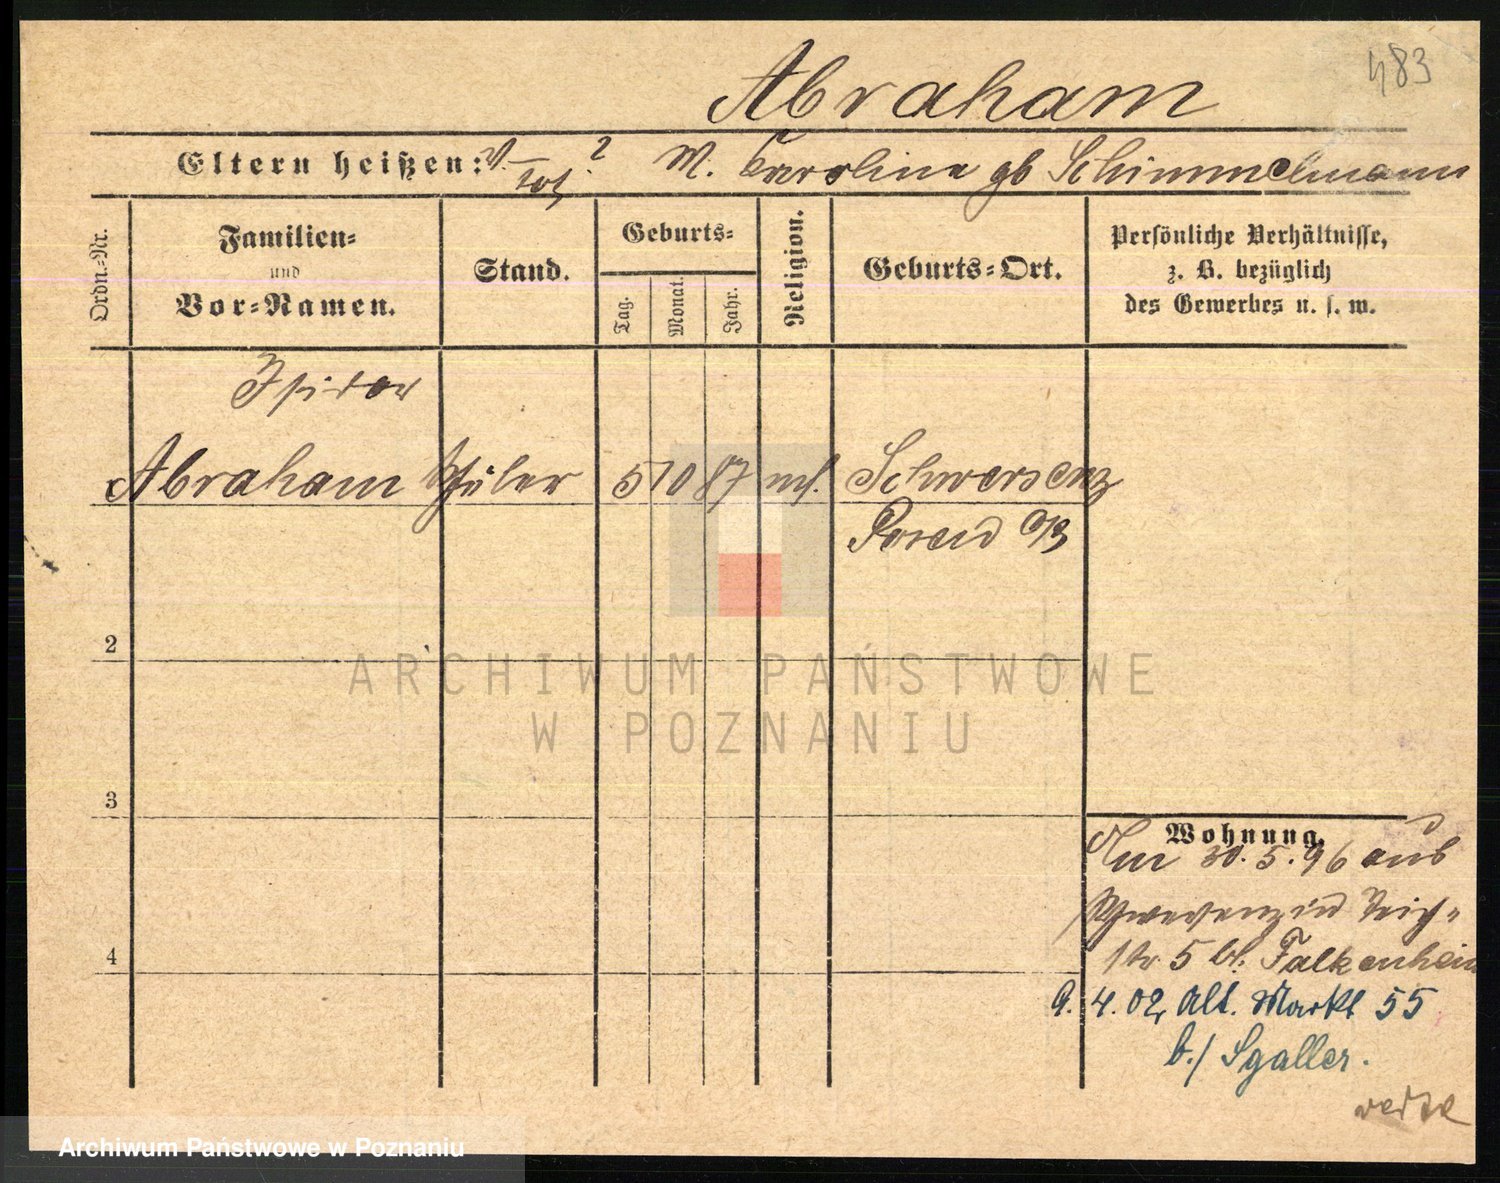 483
Abraham
Eltern heißen: V. tot ? M. Karoline gb Schimmelmann
Ordn.-Nr.
Familien-
und
Vor-Namen.
Stand.
Geburts-
Tag.
Monat.
Jahr.
Religion.
Geburts-Ort.
Persönliche Verhältnisse,
z. B. bezüglich
des Gewerbes u. s. w.
Isidor
Abraham Schüler 5 10 87 ms. Schwersenz
Posen O/
2
3
4
Wohnung.
30.5.96 aus
Schwersenz in Teich-
str 5 b. Falkenhein
9. 4. 02, Alt. Markt 55
b./ Sgaller.
ARCHIWUM PAŃSTWOWE
W POZNANIU
Archiwum Państwowe w Poznaniu